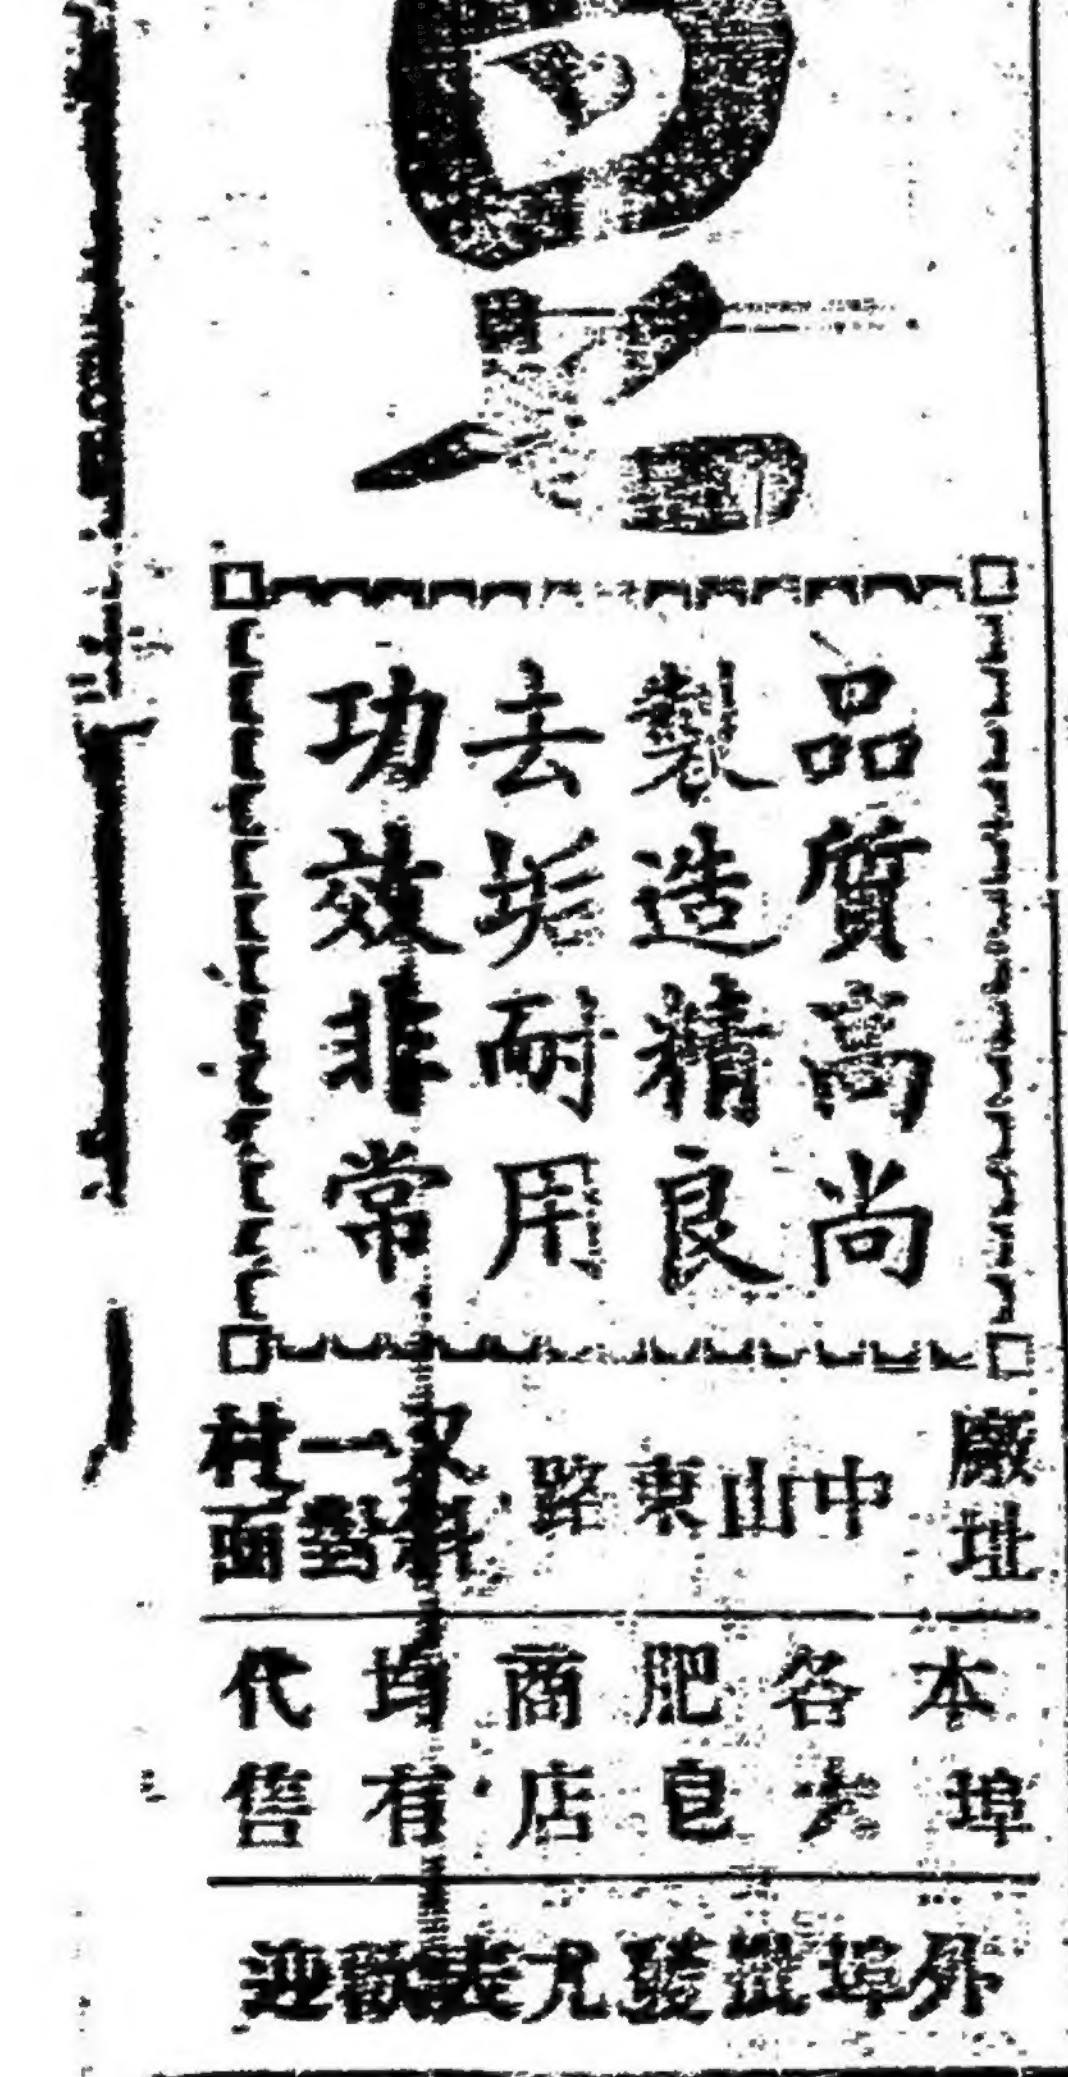 品質高尚
製造精良
去垢耐用
功效非常
廠址
中山東路
又一村
斜對面
本埠各大肥皂商店均有代售
外埠發尤表歡迎